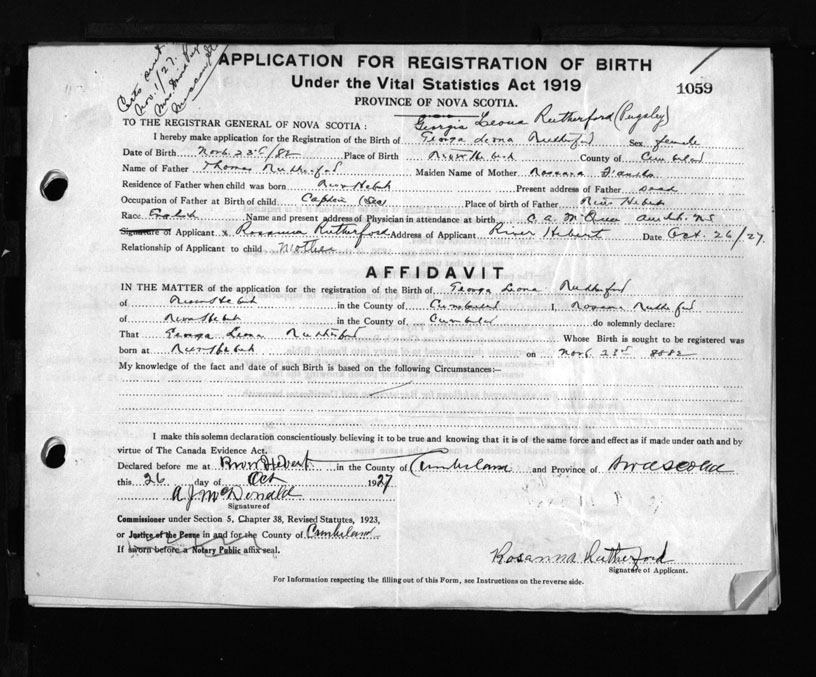 Nov. 1/27.
APPLICATION FOR REGISTRATION OF BIRTH
Under the Vital Statistics Act 1919
1059
PROVINCE OF NOVA SCOTIA.
Georgia Leona Rutherford (Pugsley)
TO THE REGISTRAR GENERAL OF NOVA SCOTIA:
I hereby make application for the Registration of the Birth of Leona Rutherford Sex female
Date of Birth Nov. 23rd/82 Place of Birth River Hebert County of Cumberland
Name of Father Thomas Rutherford Maiden Name of Mother
Residence of Father when child was born River Hebert Present address of Father dead
Occupation of Father at Birth of child Captain (Sea) Place of birth of Father River Hebert
Race English Name and present address of Physician in attendance at birth C. A. McQueen Amherst NS
Signature of Applicant x Rosanna Rutherford Address of Applicant River Hebert Date Oct. 26/27.
Relationship of Applicant to child Mother
AFFIDAVIT
IN THE MATTER of the application for the registration of the Birth of Leona Rutherford
of River Hebert in the County of Cumberland I, Rutherford
of River Hebert in the County of Cumberland do solemnly declare:
That Leona Rutherford Whose Birth is sought to be registered was
born at River Hebert on Nov. 23rd 8882
My knowledge of the fact and date of such Birth is based on the following Circumstances:—
I make this solemn declaration conscientiously believing it to be true and knowing that it is of the same force and effect as if made under oath and by
virtue of The Canada Evidence Act.
Declared before me at River Hebert in the County of Cumberland and Province of Nova Scotia
this 26 day of Oct 1927
A. J. McDonald
Signature of
Commissioner under Section 5, Chapter 38, Revised Statutes, 1923,
or Justice of the Peace in and for the County of Cumberland
If sworn before a Notary Public affix seal.
Rosanna Rutherford
Signature of Applicant.
For Information respecting the filling out of this Form, see Instructions on the reverse side.